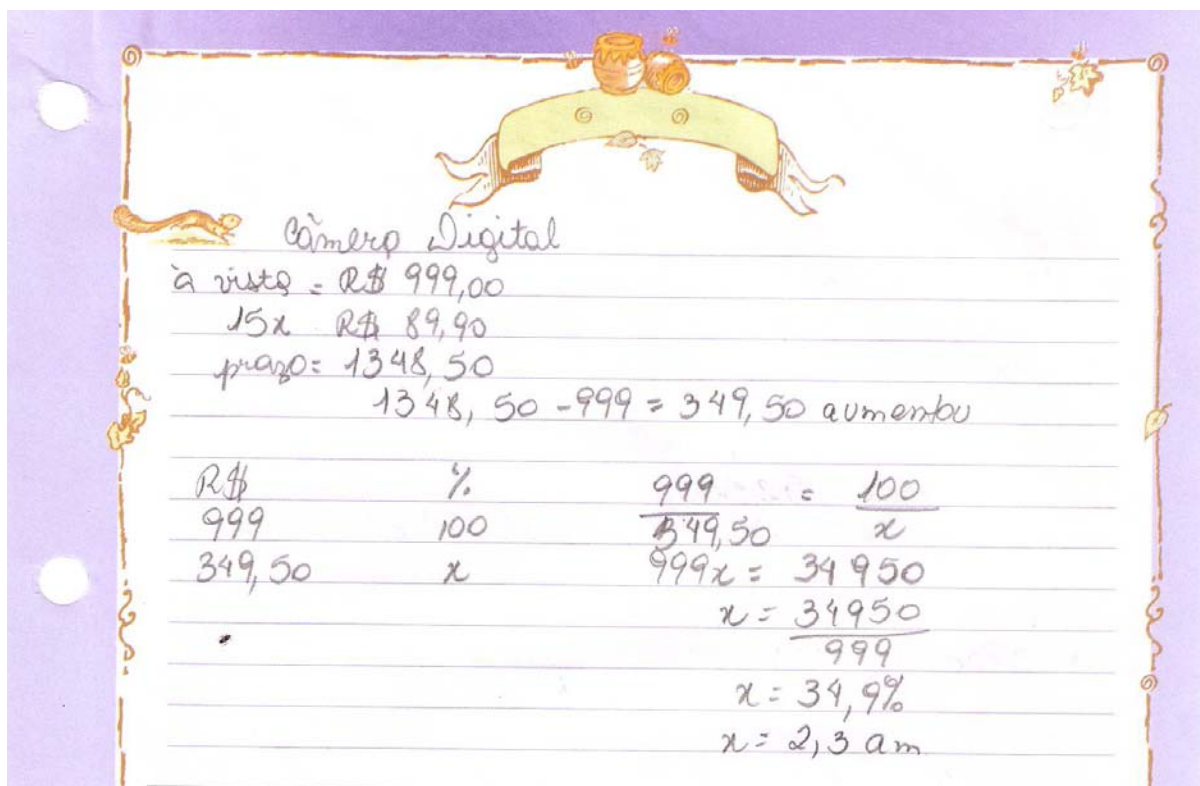 Câmera Digital
à vista = R$ 999,00
15x R$ 89,90
prazo = 1348,50
1348,50 - 999 = 349,50 aumentou
R$ % 999/349,50 = 100/x
999 100
349,50 x 999x = 34950
x = 34950/999
x = 34,9%
x = 2,3 am